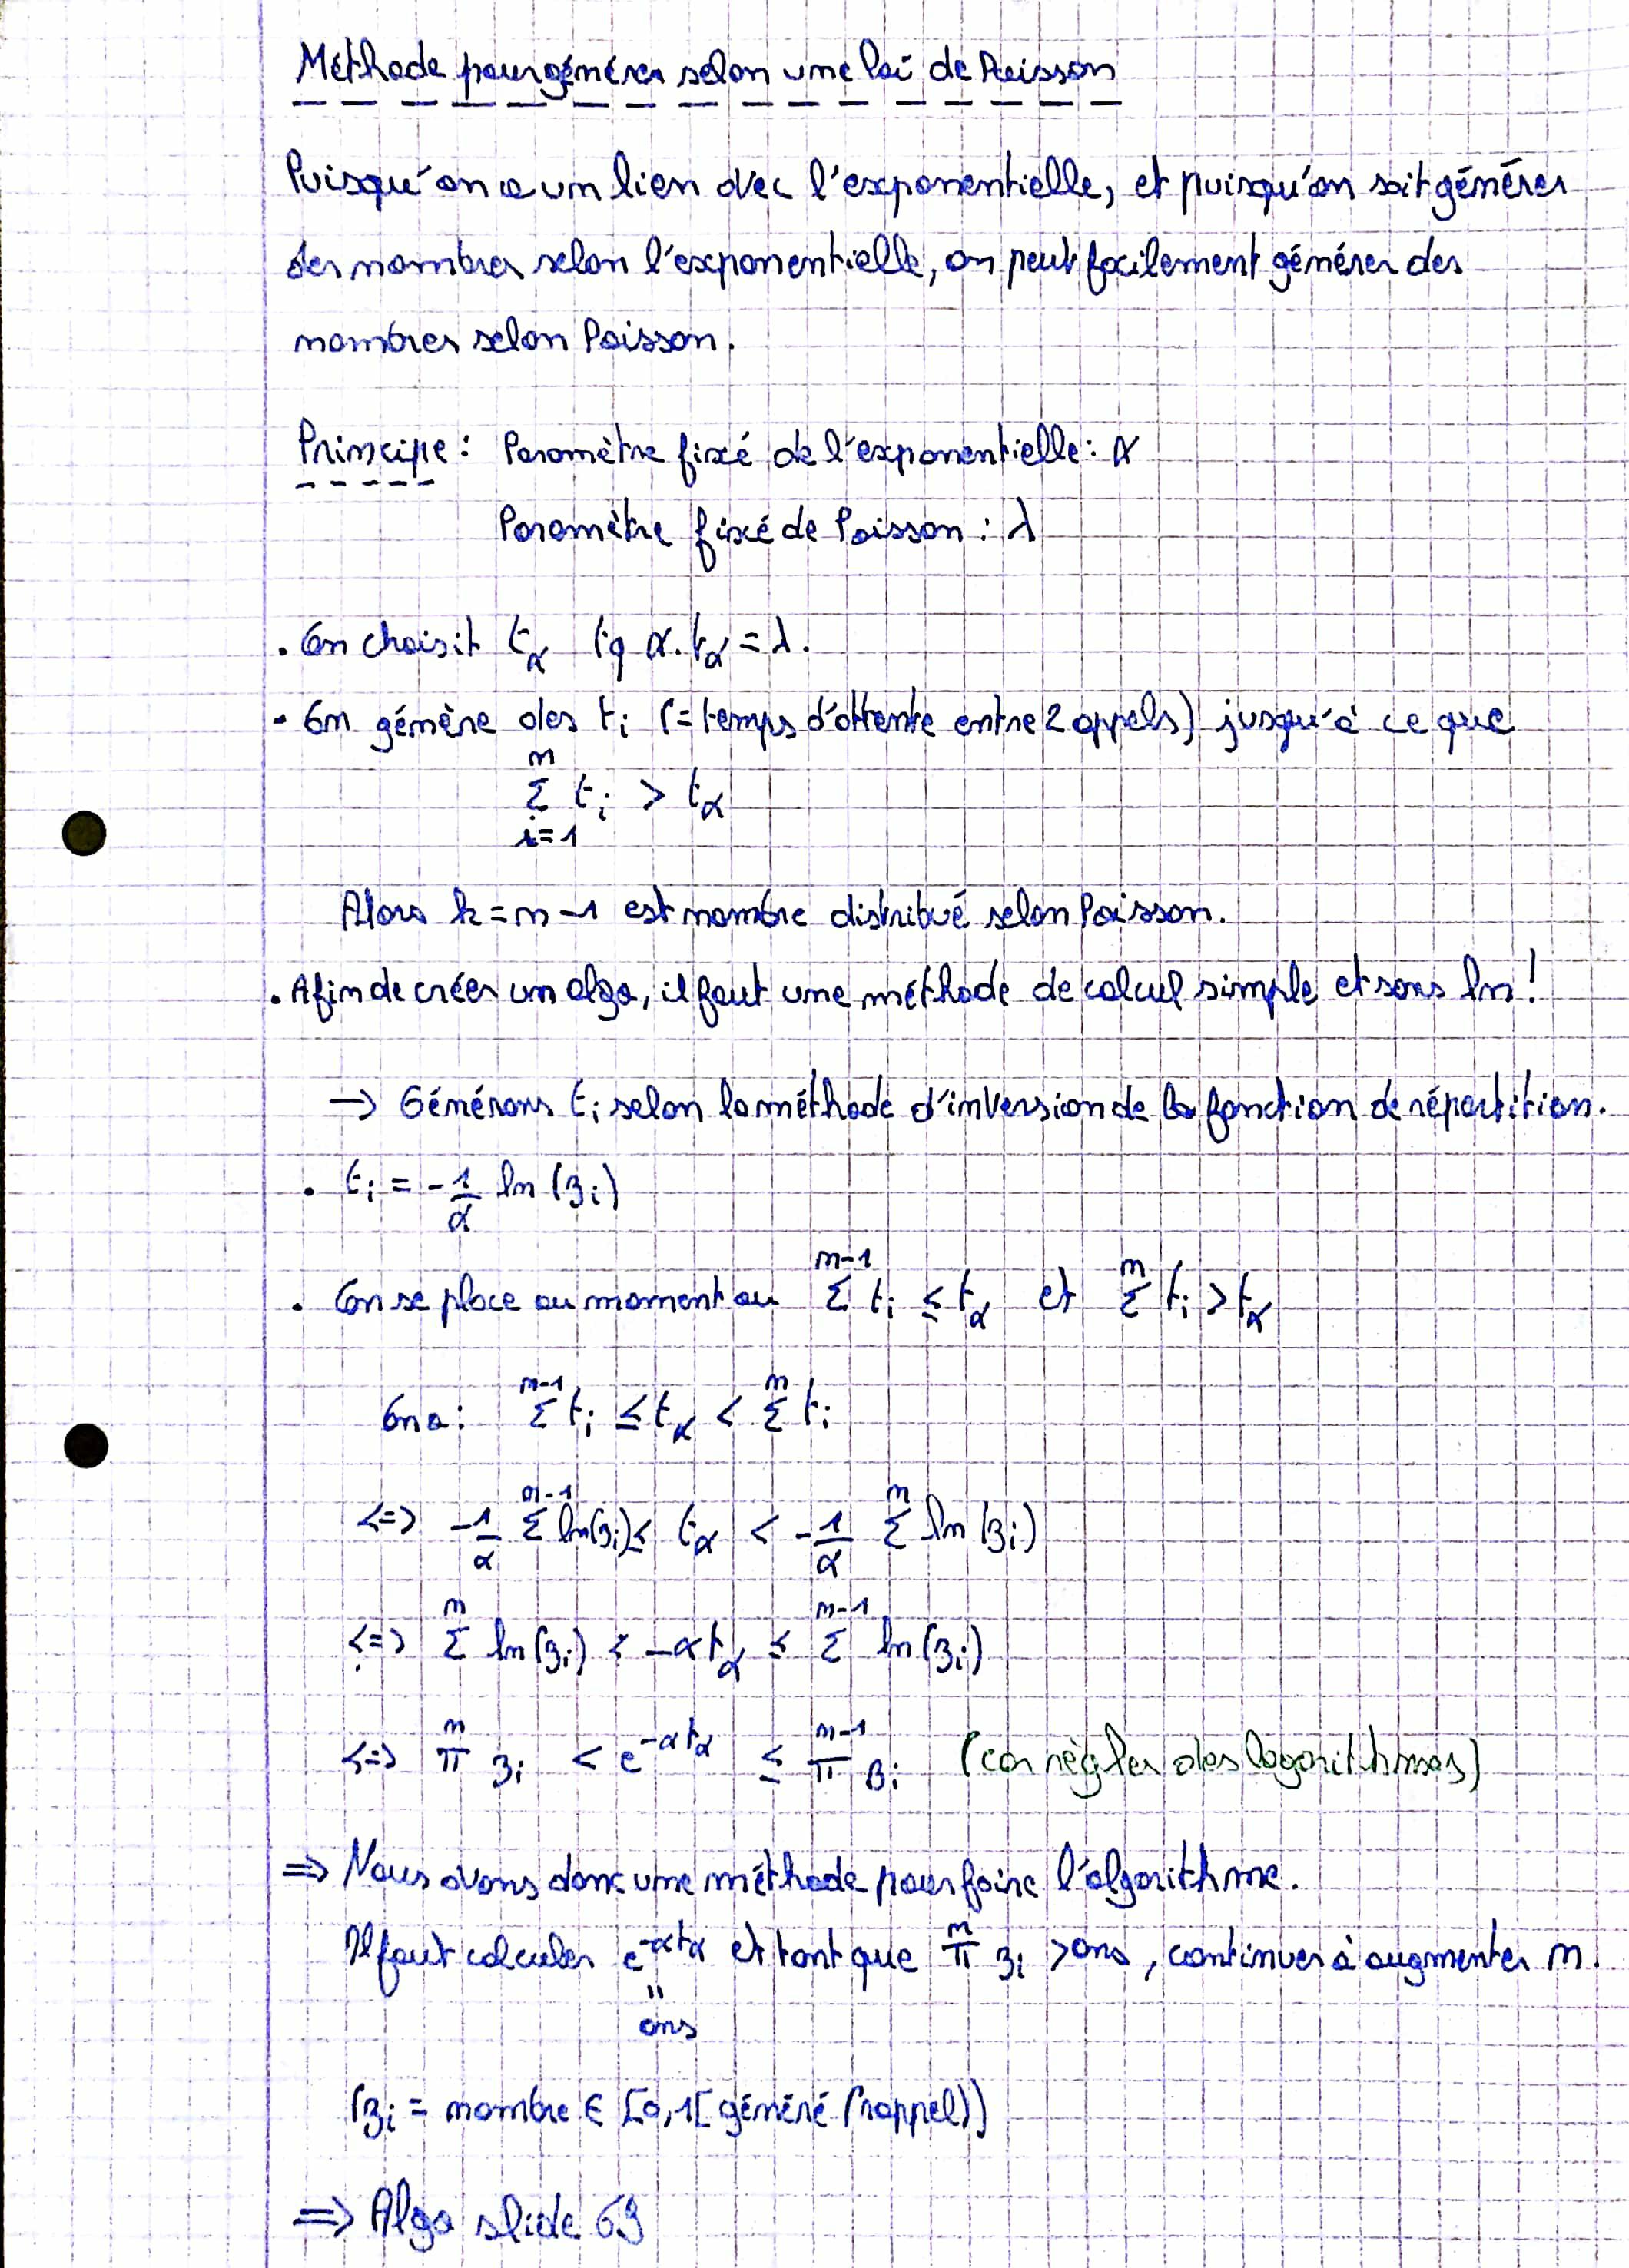 Méthode pour générer selon une loi de Poisson
Puisqu'on a un lien avec l'exponentielle, et puisqu'on sait générer
des nombres selon l'exponentielle, on peut facilement générer des
nombres selon Poisson.
Principe : Paramètre fixé de l'exponentielle : α
Paramètre fixé de Poisson : λ
. On choisit t_α tq α.t_α = λ.
- On génère des t_i (= temps d'attente entre 2 appels) jusqu'à ce que
n
Σ t_i > t_α
i=1
Alors k = n-1 est nombre distribué selon Poisson.
. Afin de créer un algo, il faut une méthode de calcul simple et sans ln !
→ Générons t_i selon la méthode d'inversion de la fonction de répartition.
. t_i = -1/α ln (z_i)
. On se place au moment ou Σ^{n-1} t_i ≤ t_α et Σ^n t_i > t_α
On a : Σ^{n-1} t_i ≤ t_α < Σ^n t_i
<=> -1/α Σ^{n-1} ln(z_i) ≤ t_α < -1/α Σ^n ln (z_i)
<=> Σ^n ln (z_i) < -α t_α ≤ Σ^{n-1} ln (z_i)
<=> π^n z_i < e^{-α t_α} ≤ π^{n-1} z_i (car règles des logarithmes)
=> Nous avons donc une méthode pour faire l'algorithme.
Il faut calculer e^{-α t_α} et tant que π^n z_i > ans, continuer à augmenter n.
"
ans
(z_i = nombre ∈ [0,1[ généré (rappel))
=> Algo slide 69